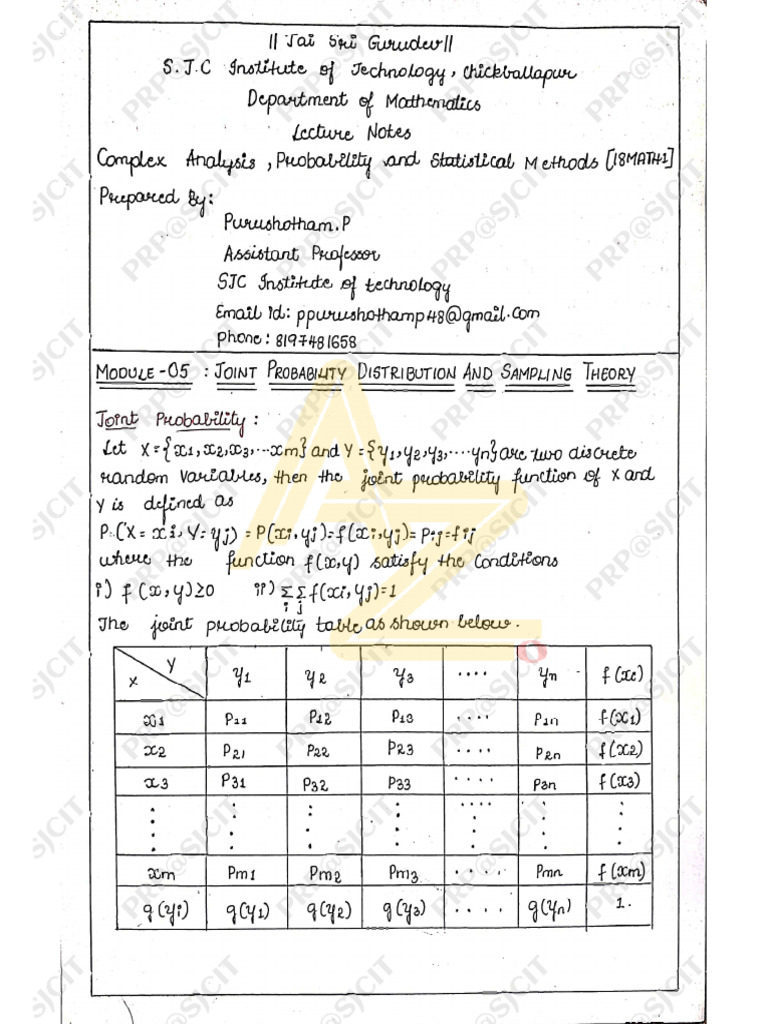 || Jai Sri Gurudev ||
S.J.C Institute of Technology, Chickballapur
Department of Mathematics
Lecture Notes
Complex Analysis, Probability and Statistical Methods [18MAT41]
Prepared By:
Purushotham.P
Assistant Professor
SJC Institute of technology
Email Id: ppurushothamp48@gmail.com
phone: 8197481658
MODULE-05 : JOINT PROBABILITY DISTRIBUTION AND SAMPLING THEORY
Joint Probability:
Let X={x1,x2,x3,...xm} and Y={y1,y2,y3,....yn} are two discrete
random variables, then the joint probability function of X and
Y is defined as
P(X=xi,Y=yj) = P(xi,yj)=f(xi,yj)=Pij=fij
where the function f(x,y) satisfy the conditions
i) f(x,y)≥0 ii) Σi Σj f(xi,yj)=1
The joint probability table as shown below.
X Y y1 y2 y3 .... yn f(x)
x1 P11 P12 P13 .... P1n f(x1)
x2 P21 P22 P23 .... P2n f(x2)
x3 P31 P32 P33 .... P3n f(x3)
xm Pm1 Pm2 Pm3 .... Pmn f(xm)
g(yj) g(y1) g(y2) g(y3) .... g(yn) 1.
PRP@SJCIT